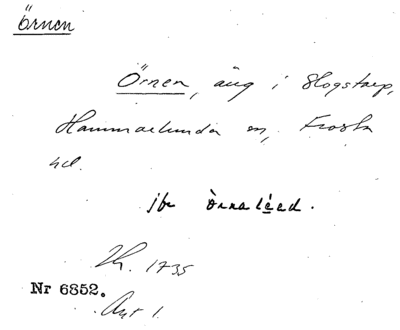 Örnen
Örnen, äng i Slogstorp,
Hammarlunda sn, Frosta
hd.
jfr
Lh. 1735
Nr 6852.
Akt 1.